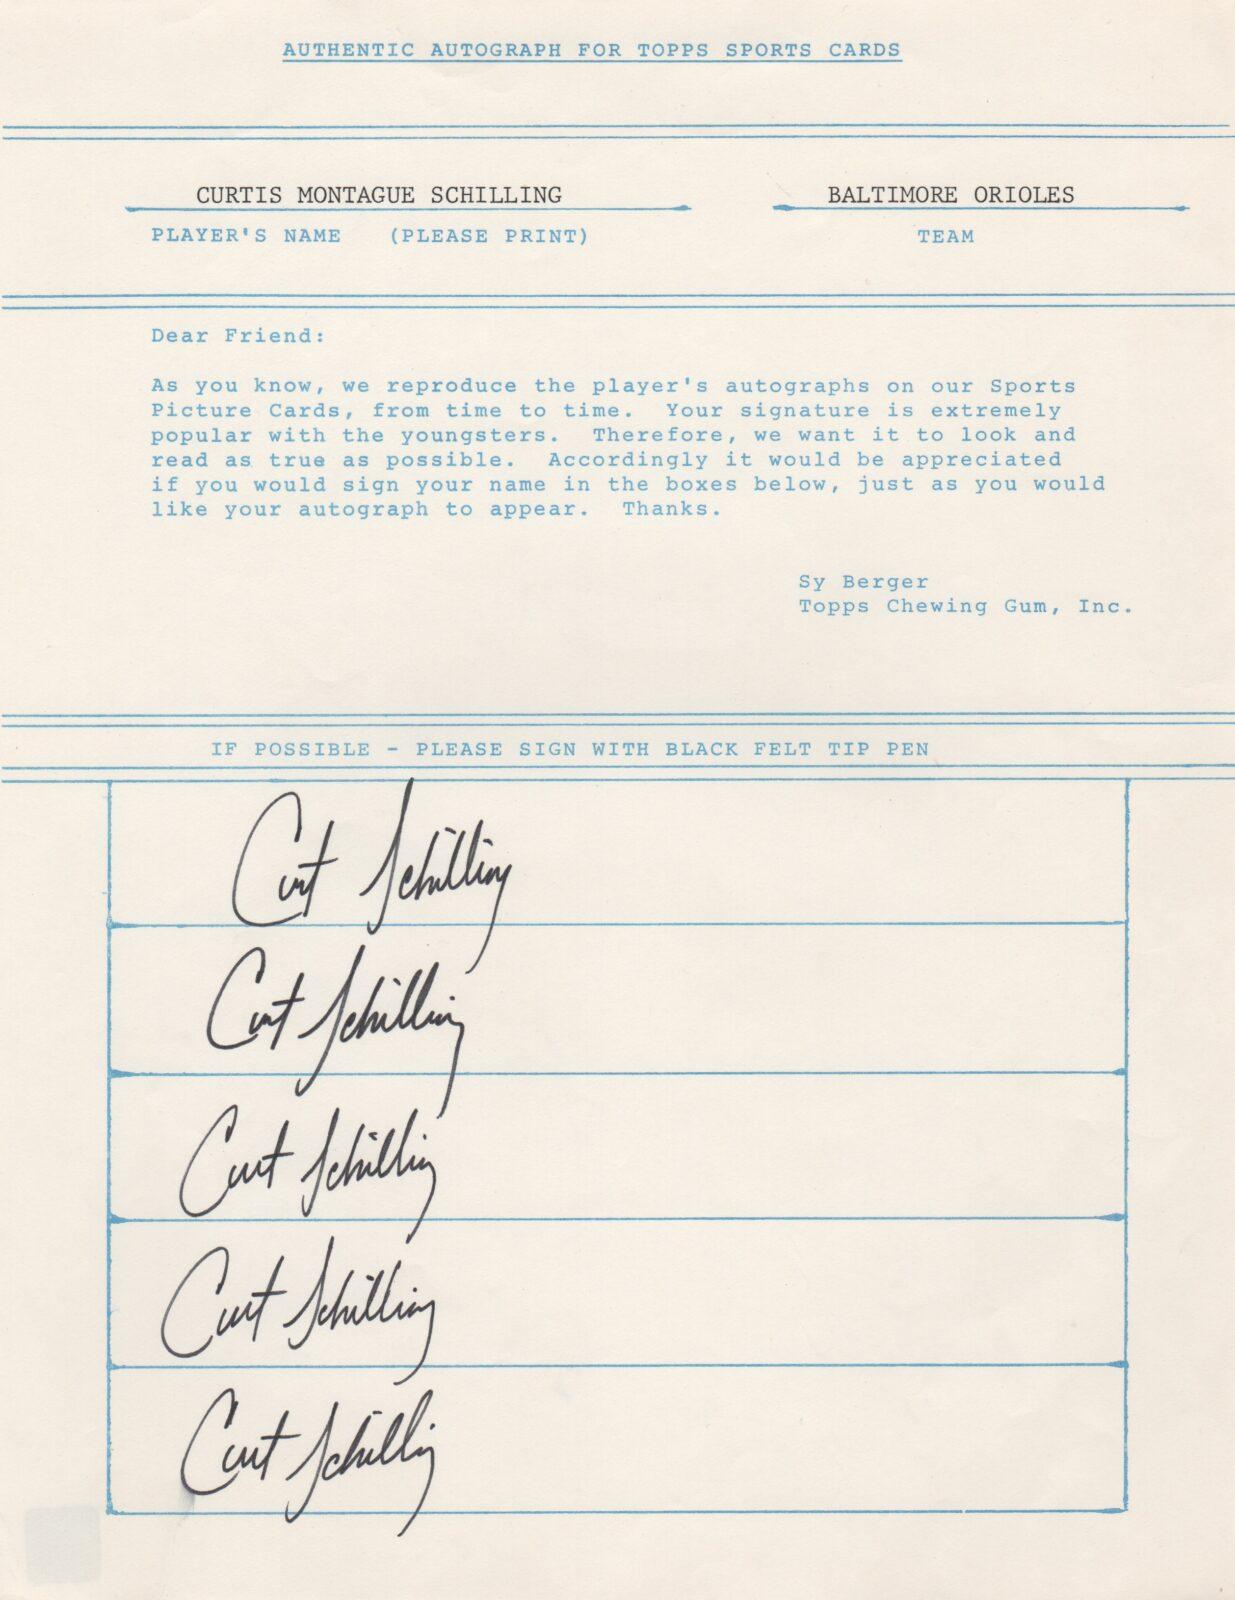 AUTHENTIC AUTOGRAPH FOR TOPPS SPORTS CARDS
CURTIS MONTAGUE SCHILLING BALTIMORE ORIOLES
PLAYER'S NAME (PLEASE PRINT) TEAM
Dear Friend:
As you know, we reproduce the player's autographs on our Sports
Picture Cards, from time to time. Your signature is extremely
popular with the youngsters. Therefore, we want it to look and
read as true as possible. Accordingly it would be appreciated
if you would sign your name in the boxes below, just as you would
like your autograph to appear. Thanks.
Sy Berger
Topps Chewing Gum, Inc.
IF POSSIBLE - PLEASE SIGN WITH BLACK FELT TIP PEN
Curt Schilling
Curt Schilling
Curt Schilling
Curt Schilling
Curt Schilling